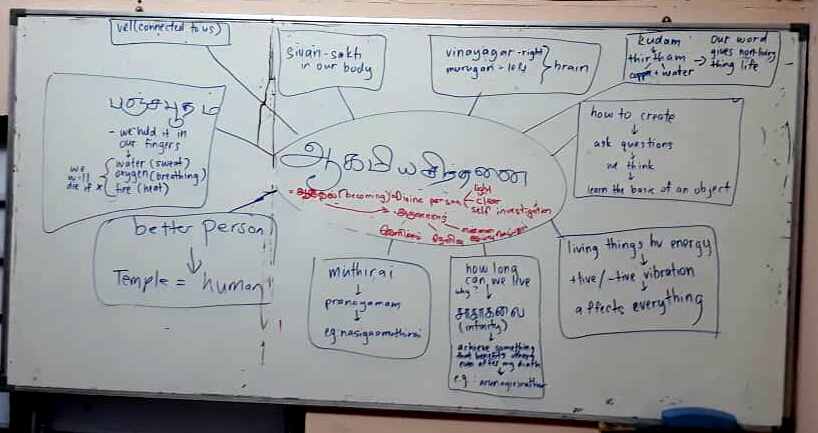 vel(connected to us)
sivan-sakti
in our body
vinayagar-right
murugan-left
brain
kudam
thirtham
copper + water
→ our word
gives non living
thing life
பஞ்சபூதம்
- we hold it in
our fingers
we will die if x
water (sweat)
oxygen (breathing)
fire (heat)
how to create
ask questions
we think
learn the basic of an object
ஆகமிய சிந்தனை
(becoming) Divine person
light
clear
self investigation
better person
Temple = human
muthirai
pranayamam
eg: nasigaamuthirai
how long
can we live
why?
(infinity)
achieve something
that benefits others
even after my death
e.g: arunagirinathar
living things hv energy
+tive/-tive vibration
affects everything